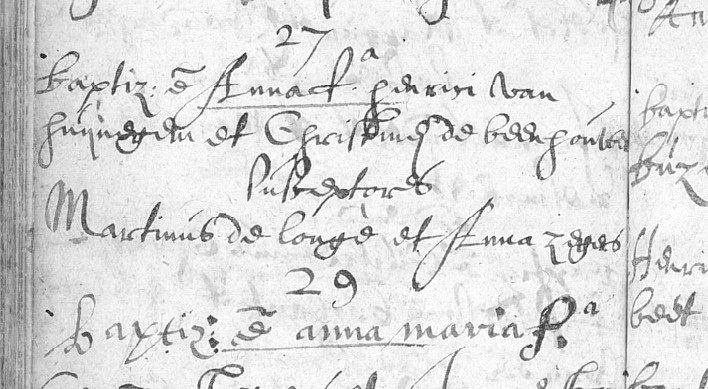 27
Baptiz: ē Anna f.ª Henrici van
Huijnegem et Christinę de beenhouwer
susceptores
Martinus de longè et Anna zegers
29
Baptiz: ē anna maria f.ª
baptiz
Henri
beet